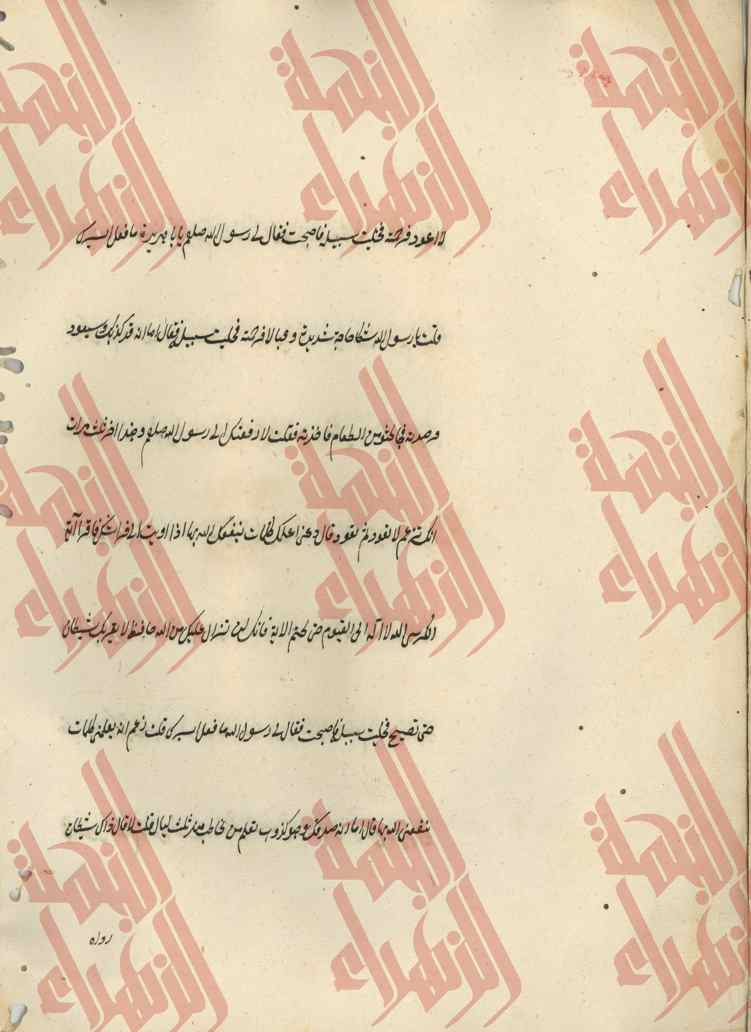 لا اعود فرحمته فخليت سبيله فاصبحت فقال لي رسول الله صلعم يا ابا هريرة ما فعل اسيرك
قلت يا رسول الله شكا حاجة شديدة وعيالا فرحمته فخليت سبيله فقال اما انه قد كذبك وسيعود
فرصدته فجاء يحثو من الطعام فاخذته فقلت لارفعنك الى رسول الله صلعم وهذا اخر ثلث مرات
انك تزعم لا تعود ثم تعود قال دعني اعلمك كلمات ينفعك الله بها اذا اويت الى فراشك فاقرا آية
الكرسي الله لا اله الا هو الحي القيوم حتى تختم الاية فانك لن تزال عليك من الله حافظ لا يقربك شيطان
حتى تصبح فخليت سبيله فاصبحت فقال لي رسول الله ما فعل اسيرك قلت زعم انه يعلمني كلمات
ينفعني الله بها قال اما انه صدقك وهو كذوب تعلم من تخاطب منذ ثلث ليال قلت لا قال ذاك شيطان
رواه
النهضة الزهراء